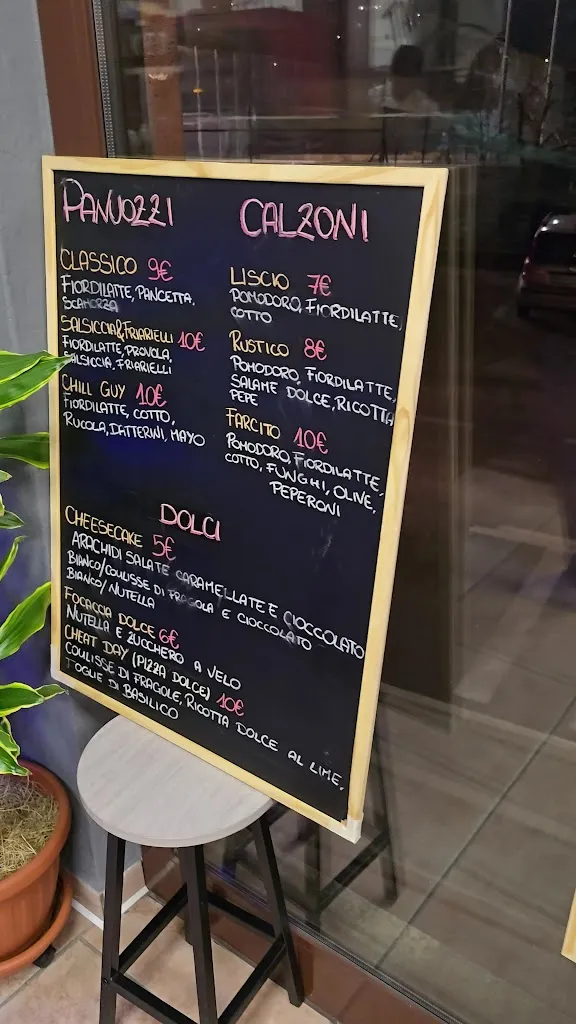 PANUOZZI
CLASSICO 9€
FIORDILATTE, PANCETTA,
SCAMORZA
SALSICCIA&FRIARIELLI 10€
FIORDILATTE, PROVOLA,
SALSICCIA, FRIARIELLI
CHILL GUY 10€
FIORDILATTE, COTTO,
RUCOLA, DATTERINI, MAYO
CALZONI
LISCIO 7€
POMODORO, FIORDILATTE,
COTTO
RUSTICO 8€
POMODORO, FIORDILATTE,
SALAME DOLCE, RICOTTA
PEPE
FARCITO 10€
POMODORO, FIORDILATTE,
COTTO, FUNGHI, OLIVE,
PEPERONI
DOLCI
CHEESECAKE 5€
ARACHIDI SALATE CARAMELLATE E CIOCCOLATO
BIANCO/COULISSE DI FRAGOLA E CIOCCOLATO
BIANCO/NUTELLA
FOCACCIA DOLCE 6€
NUTELLA E ZUCCHERO A VELO
CHEAT DAY (PIZZA DOLCE) 10€
COULISSE DI FRAGOLE, RICOTTA DOLCE AL LIME,
FOGLIE DI BASILICO